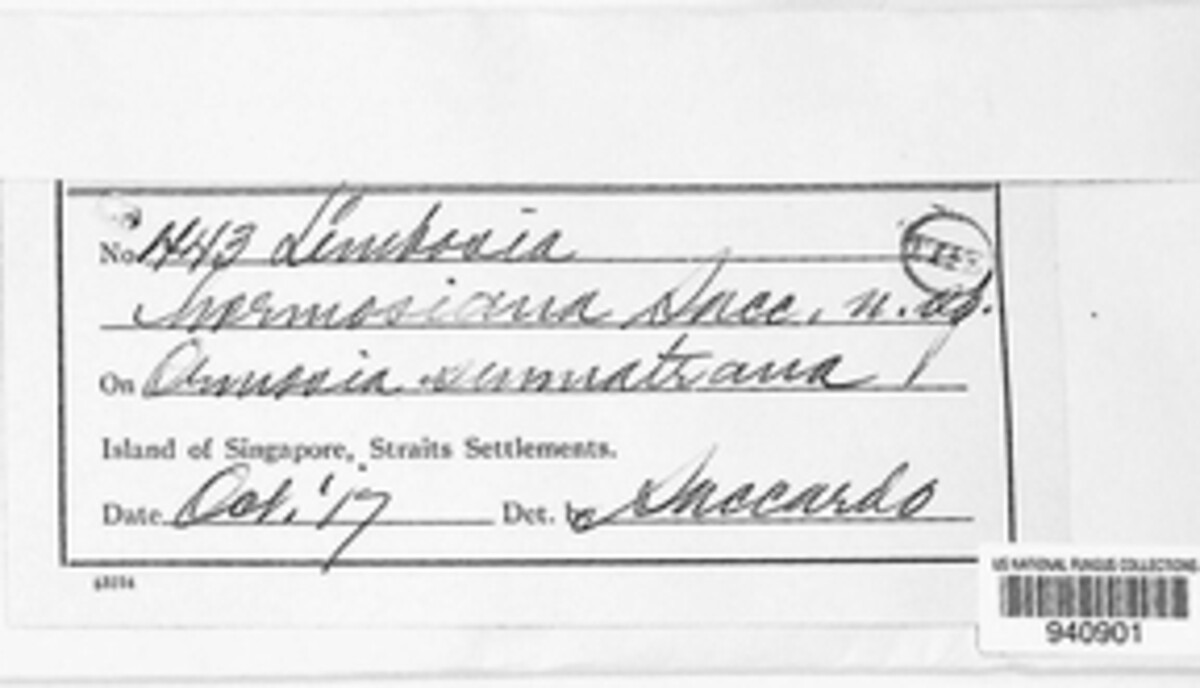 No Lembosia
hormosiana Sacc. n. sp.
On Ormosia sumatrana
Island of Singapore, Straits Settlements.
Date Oct. '17 Det. by Saccardo
US NATIONAL FUNGUS COLLECTIONS
940901